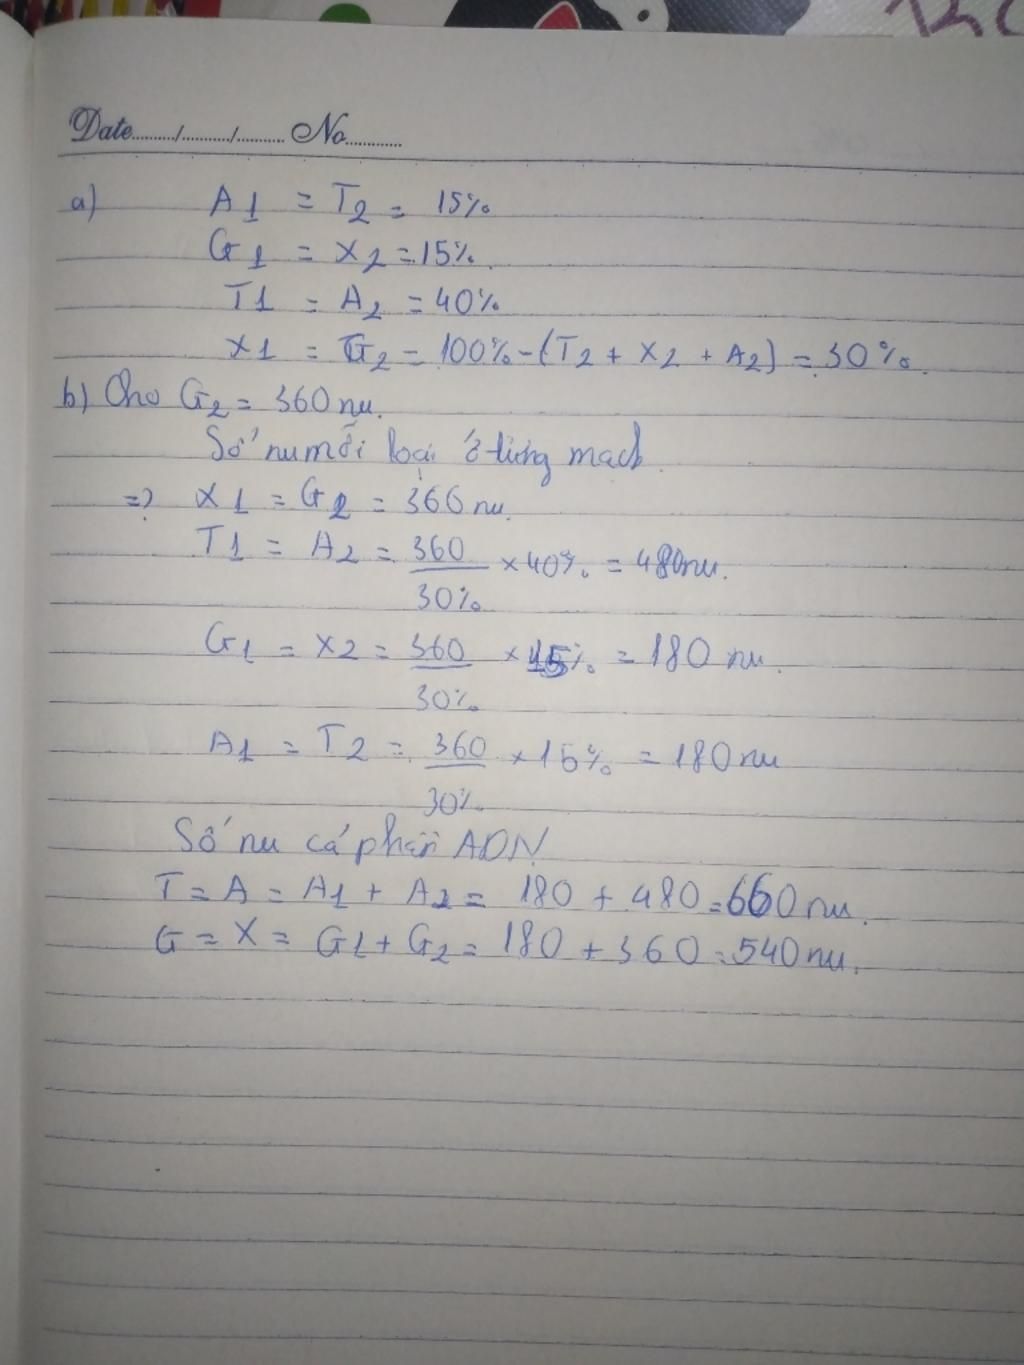 Date......../......../........ No............
a) A1 = T2 = 15%
G1 = X2 = 15%.
T1 = A2 = 40%
X1 = G2 = 100% - (T2 + X2 + A2) = 30%.
b) Cho G2 = 360 nu.
Số nu mỗi loại ở từng mạch.
=> X1 = G2 = 360 nu.
T1 = A2 = 360/30% × 40% = 480 nu.
G1 = X2 = 360/30% × 15% = 180 nu.
A1 = T2 = 360/30% × 15% = 180 nu
Số nu cả phân ADN
T = A = A1 + A2 = 180 + 480 = 660 nu.
G = X = G1 + G2 = 180 + 360 = 540 nu.